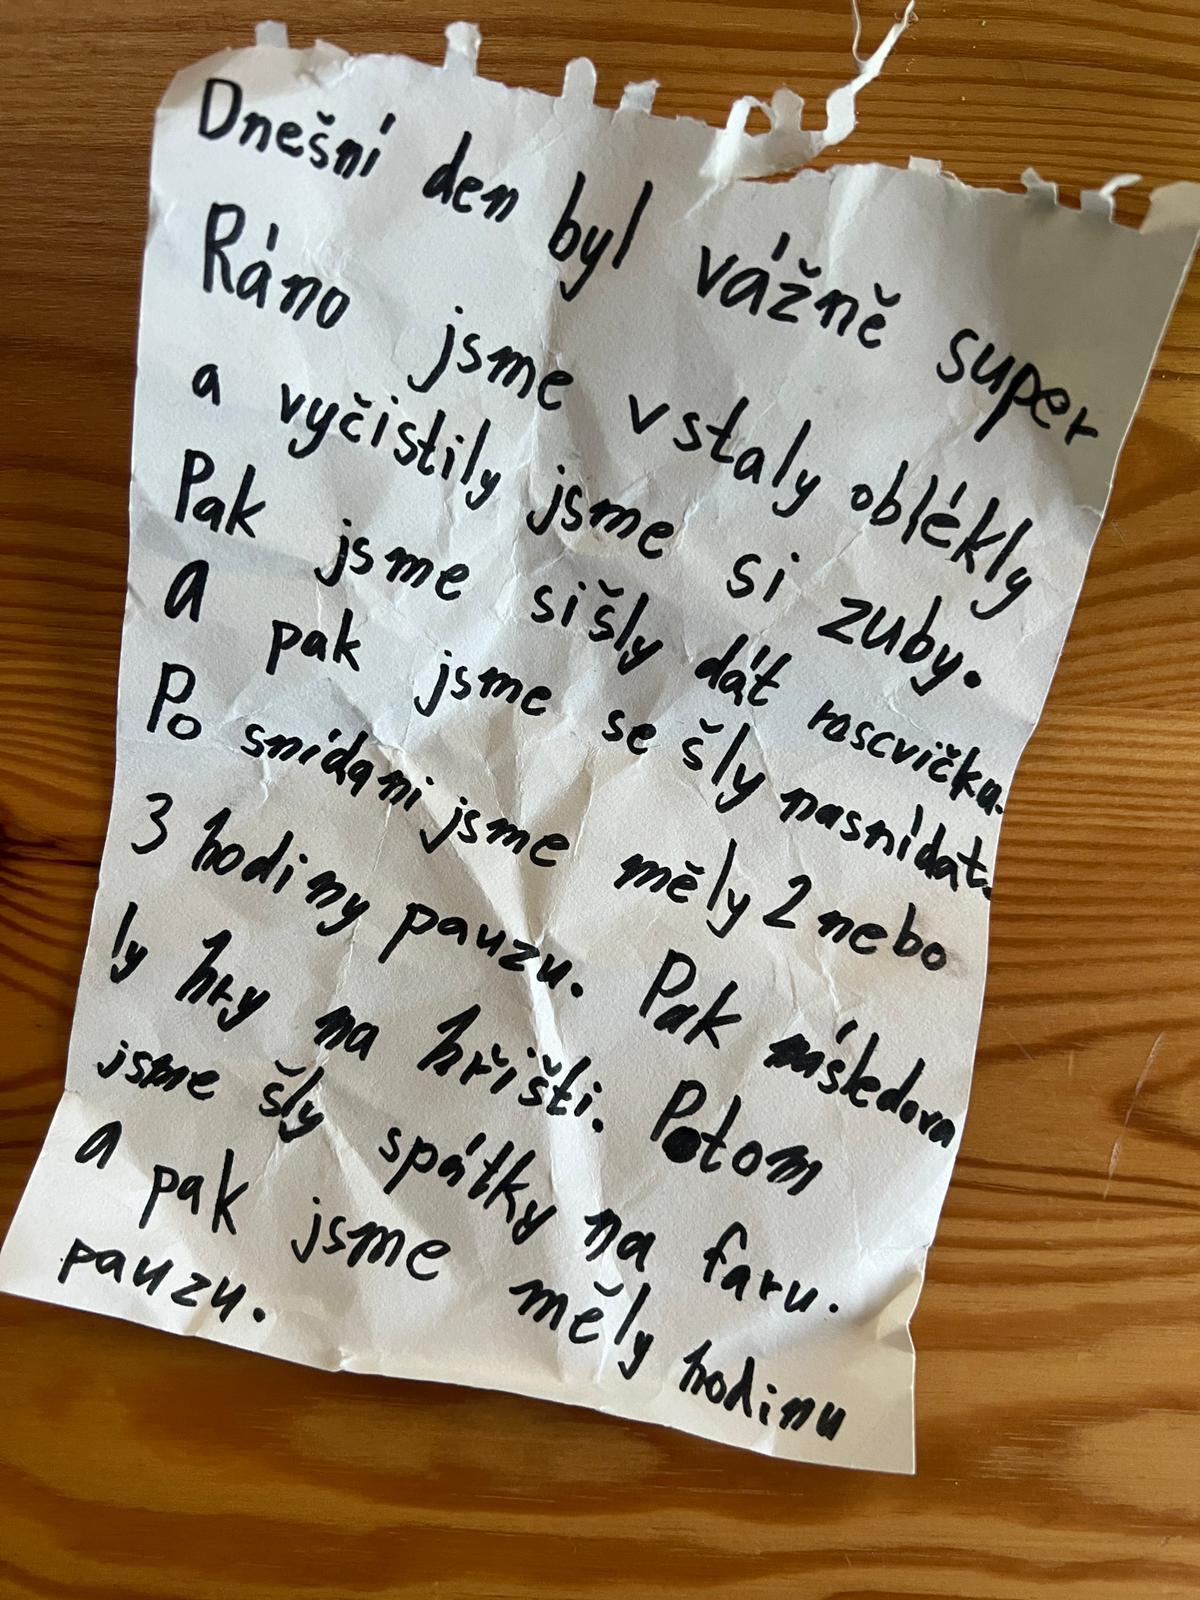 Dnešní den byl vážně super
Ráno jsme vstaly oblékly
a vyčistily jsme si zuby.
Pak jsme sišly dát rascvičku.
A pak jsme se šly nasnídat.
Po snídani jsme měly 2 nebo
3 hodiny pauzu. Pak následova
ly hry na hřišti. Potom
jsme šly spátky na faru.
A pak jsme měly hodinu
pauzu.